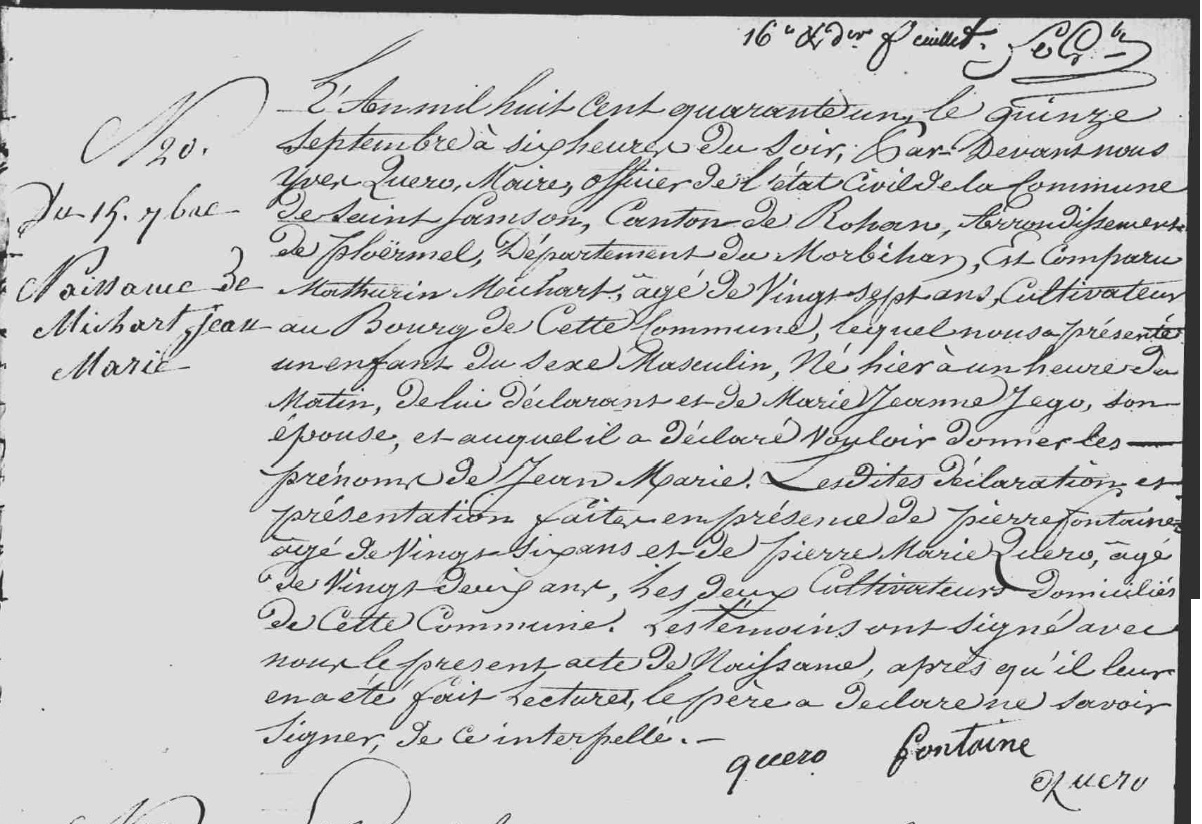 16e & der feuillet.
N 20.
Du 15. 7bre
Naissance de
Michart, Jean
Marie
L'An mil huit cent quarante un, le quinze
septembre à six heures du soir, Par-Devant nous
Yves Quero, Maire, officier de l'état Civil de la Commune
de Saint Samson, Canton de Rohan, Arrondissement
de ploërmel, Département du Morbihan, Est Comparu
Mathurin Michart, âgé de Vingt sept ans, Cultivateur
au Bourg de Cette Commune, lequel nous a présenté
un enfant du sexe Masculin, Né hier à un heure du
Matin, de lui déclarant et de Marie Jeanne Jego, son
épouse, et auquel il a déclaré Vouloir donner les
prénoms de Jean Marie. Les dites déclaration et
présentation faites en présence de pierre fontaine
âgé de Vingt six ans et de pierre Marie Quero, âgé
de Vingt deux ans, Les deux Cultivateurs domiciliés
de Cette Commune. Les témoins ont signé avec
nous le present acte de Naissance, après qu'il leur
en a été fait Lecture, le père a declare ne savoir
Signer, de ce interpellé. —
quero fontaine
Quero